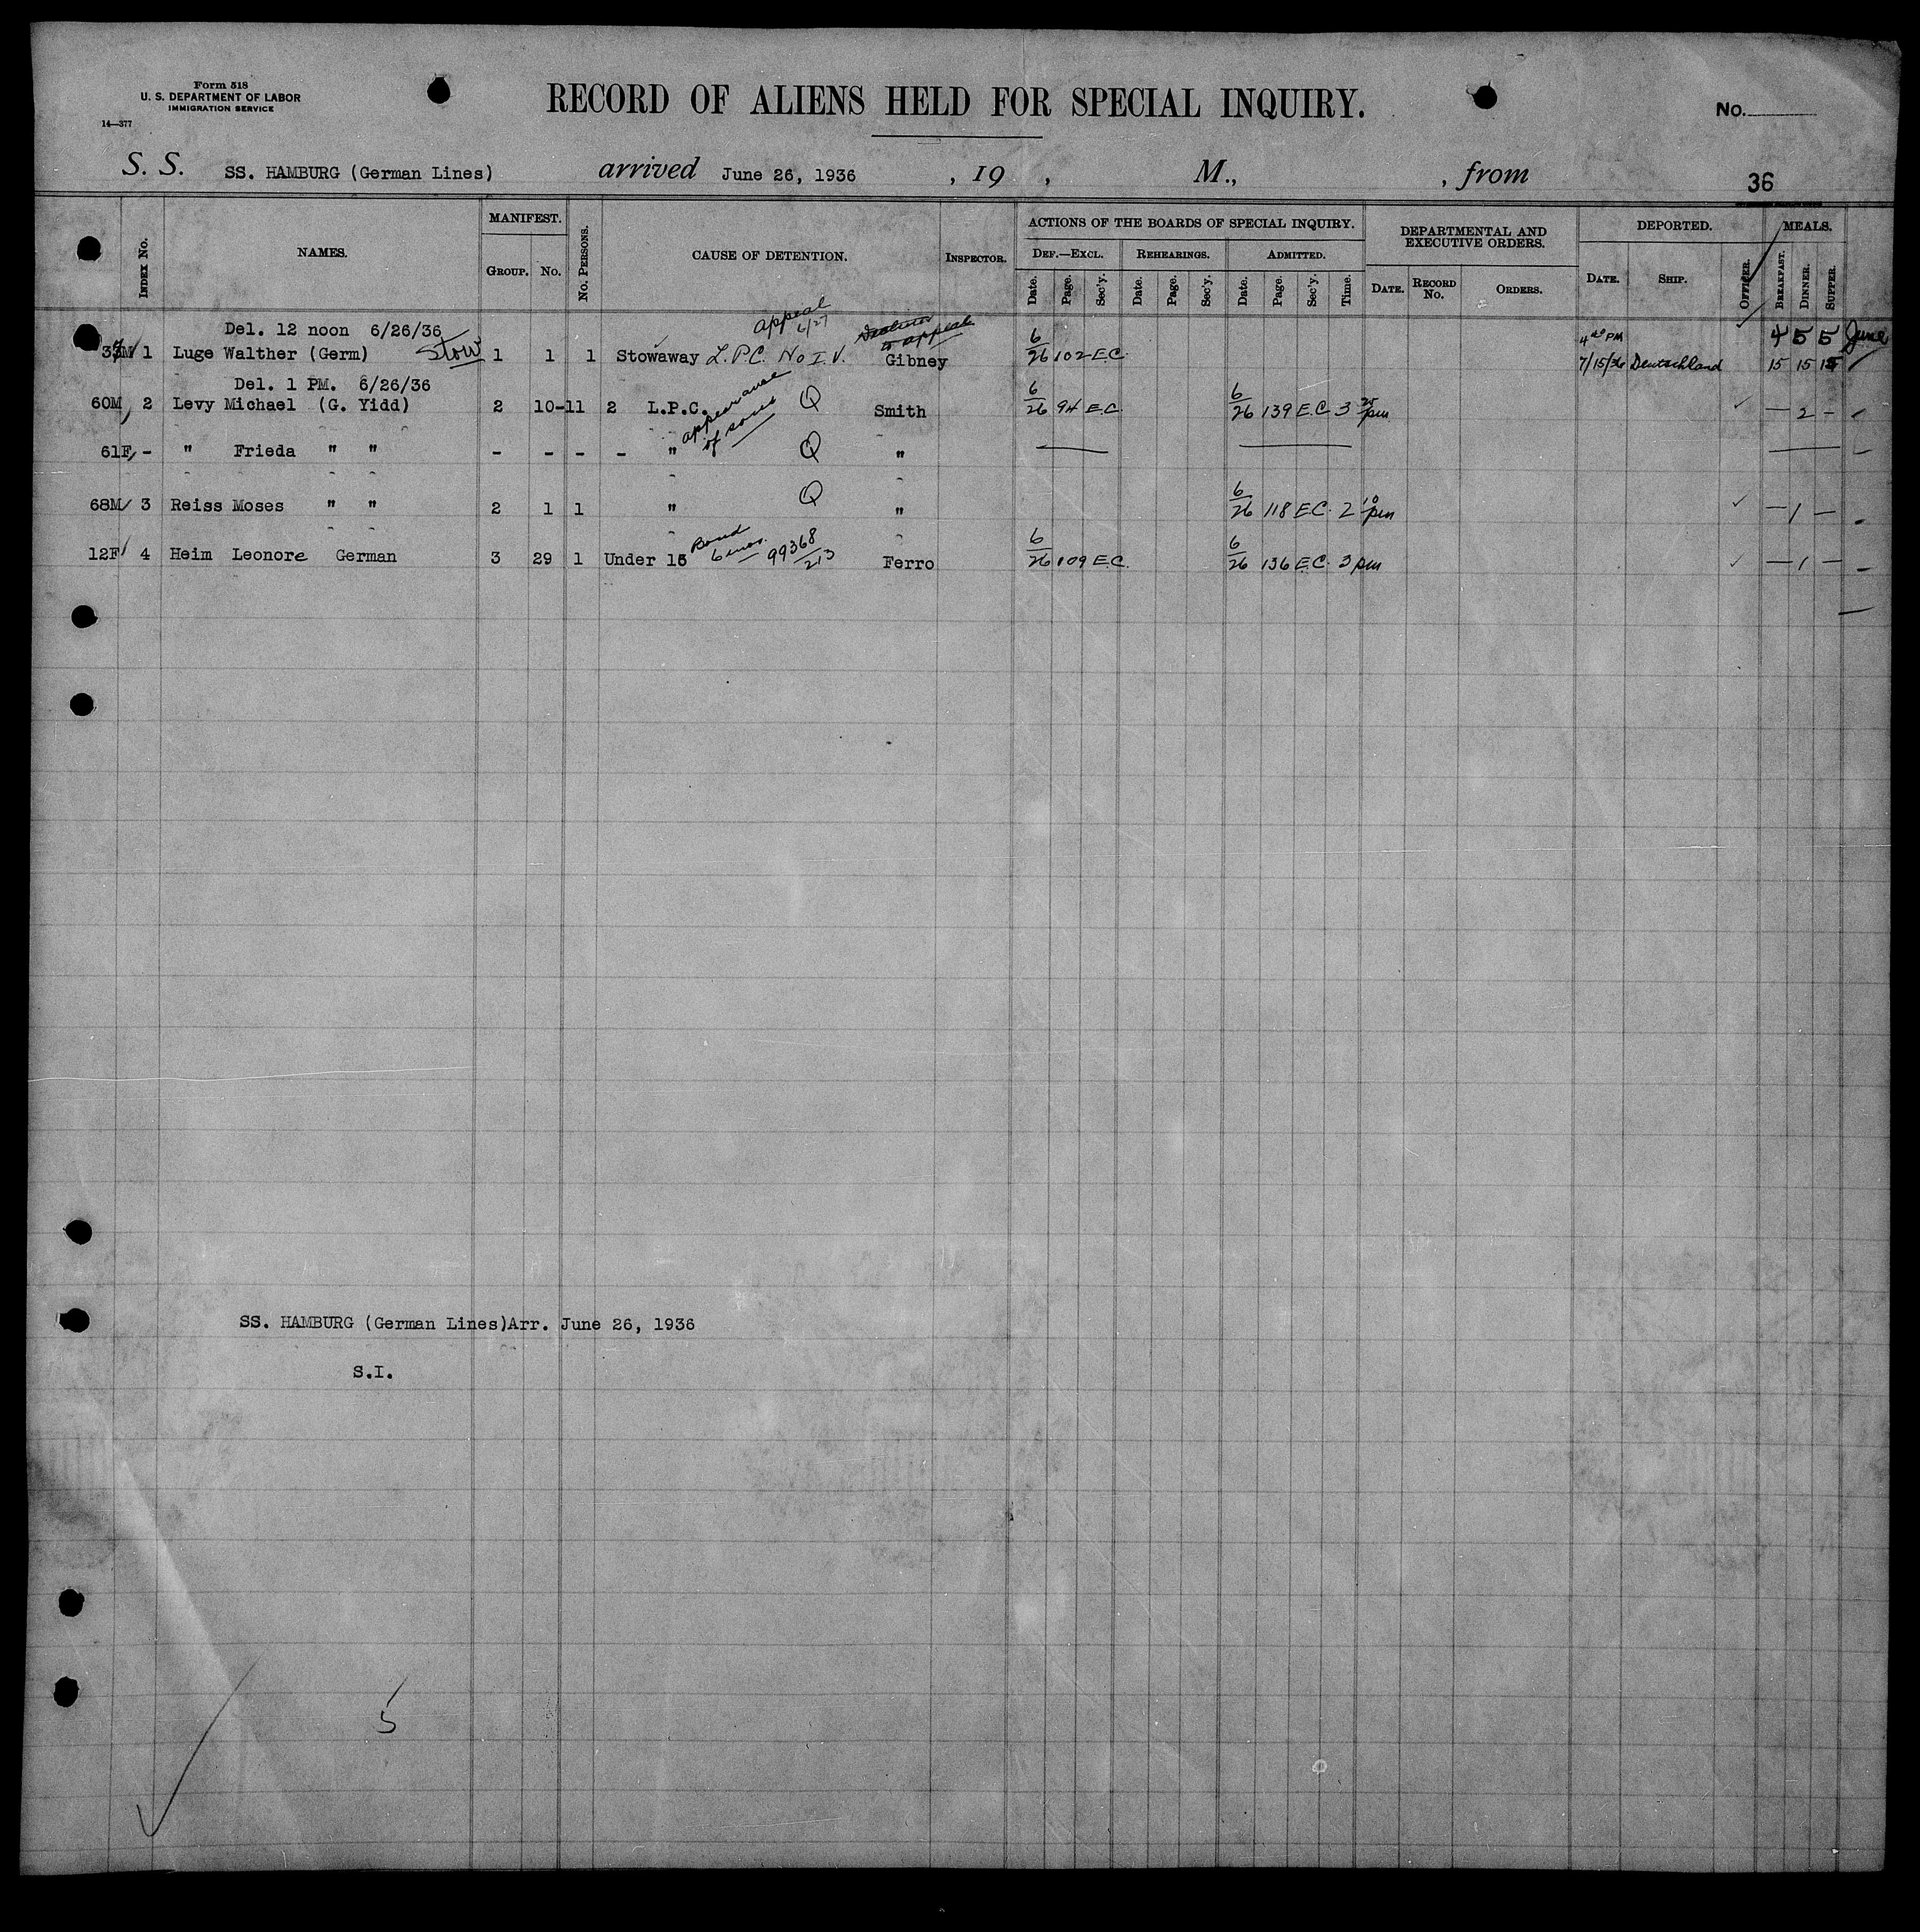 Form 518
U. S. DEPARTMENT OF LABOR
IMMIGRATION SERVICE
14—377
RECORD OF ALIENS HELD FOR SPECIAL INQUIRY.
No.
S. S. SS. HAMBURG (German Lines) arrived June 26, 1936 , 19 , M., , from
36
INDEX No. NAMES. MANIFEST. GROUP. No. No. PERSONS. CAUSE OF DETENTION. INSPECTOR. ACTIONS OF THE BOARDS OF SPECIAL INQUIRY. DEF.—EXCL. Date. Page. Sec'y. REHEARINGS. Date. Page. Sec'y. ADMITTED. Date. Page. Sec'y. Time. DEPARTMENTAL AND EXECUTIVE ORDERS. DATE. RECORD No. ORDERS. DEPORTED. DATE. SHIP. OFFICER. MEALS. BREAKFAST. DINNER. SUPPER.
Del. 12 noon 6/26/36 Stow appeal 6/27 to appeal 4 40 PM 4 5 5 June
1 Luge Walther (Germ) 1 1 1 Stowaway L.P.C. No I.V. Gibney 6/26 102 E.C. 7/15/36 Deutschland 15 15 15
Del. 1 PM. 6/26/36
60M 2 Levy Michael (G. Yidd) 2 10-11 2 L.P.C. appearance of sons Q Smith 6/26 94 E.C. 6/26 139 E.C. 3 25 pm — 2 —
61F - " Frieda " " - - - - " Q "
68M 3 Reiss Moses " " 2 1 1 " Q " 6/26 118 E.C. 2 10 pm — 1 —
12F 4 Heim Leonore German 3 29 1 Under 16 Bond 6 mos. 99368/213 Ferro 6/26 109 E.C. 6/26 136 E.C. 3 pm — 1 —
SS. HAMBURG (German Lines)Arr. June 26, 1936
S.I.
5